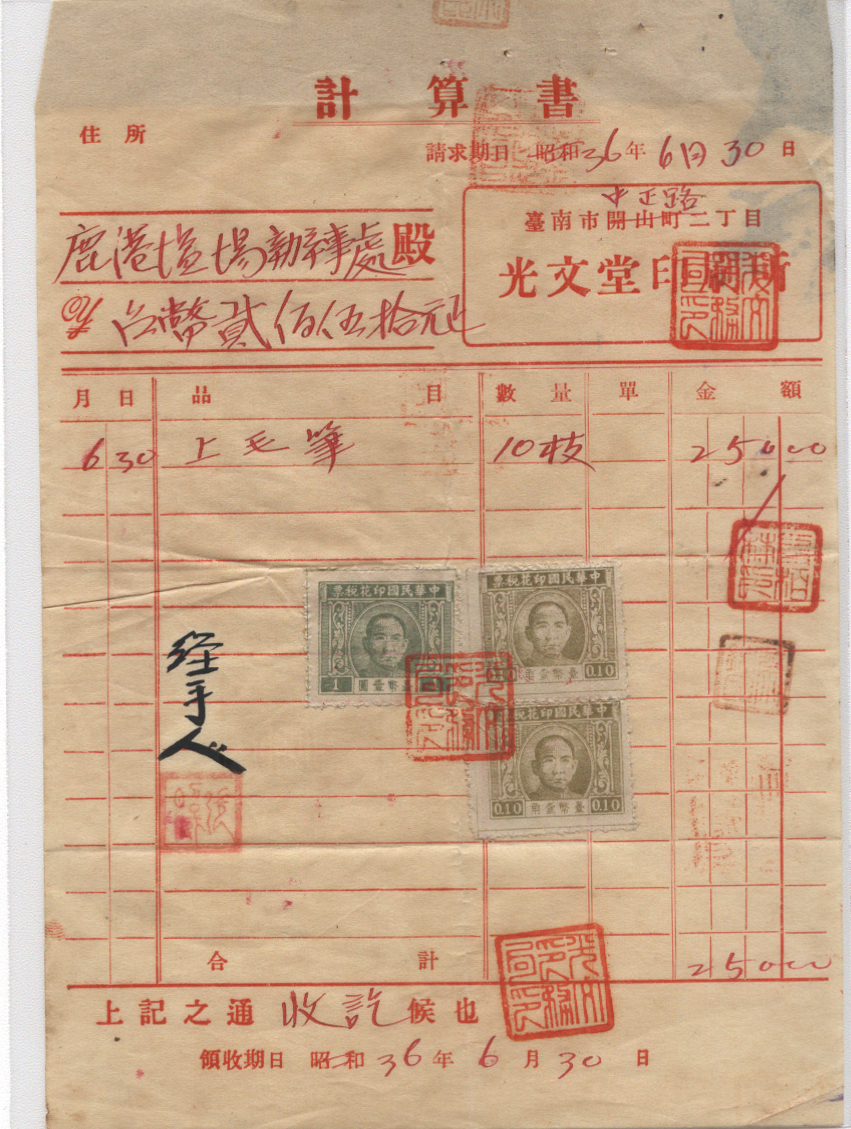 計算書
住所
請求期日 昭和36年6月30日
中正路
臺南市開山町二丁目
光文堂印刷所
鹿港塩場辦事處殿
台幣貳佰伍拾元正
月 日 品目 數量 單 金額
6 30 上毛筆 10枝 25000
中華民國印花稅票
1 臺幣壹圓
中華民國印花稅票
0.10
中華民國印花稅票
0.10 0.10
経手人
合計 25000
上記之通收訖候也
領收期日 昭和36年6月30日